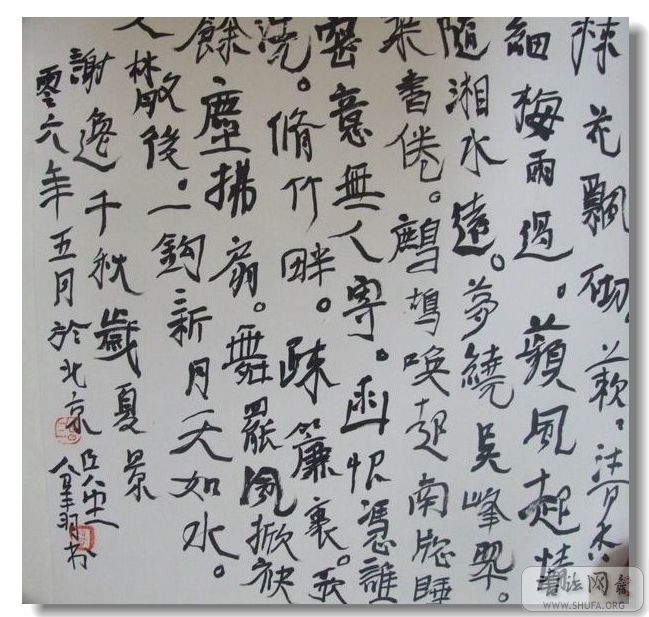 楝花飄砌。蔌〻清香
細梅雨過。蘋風起情
隨湘水遠。夢繞吳峰翠。
琴書倦。鷓鴣喚起南牕睡
密意無人寄。幽恨憑誰
洗。脩竹畔。疎簾裏。歌
餘塵拂扇。舞罷風掀袂
人散後。一鉤新月天如水。
謝逸千秋歲夏景
零六年五月於北京
書法网
WWW.SHUFA.ORG